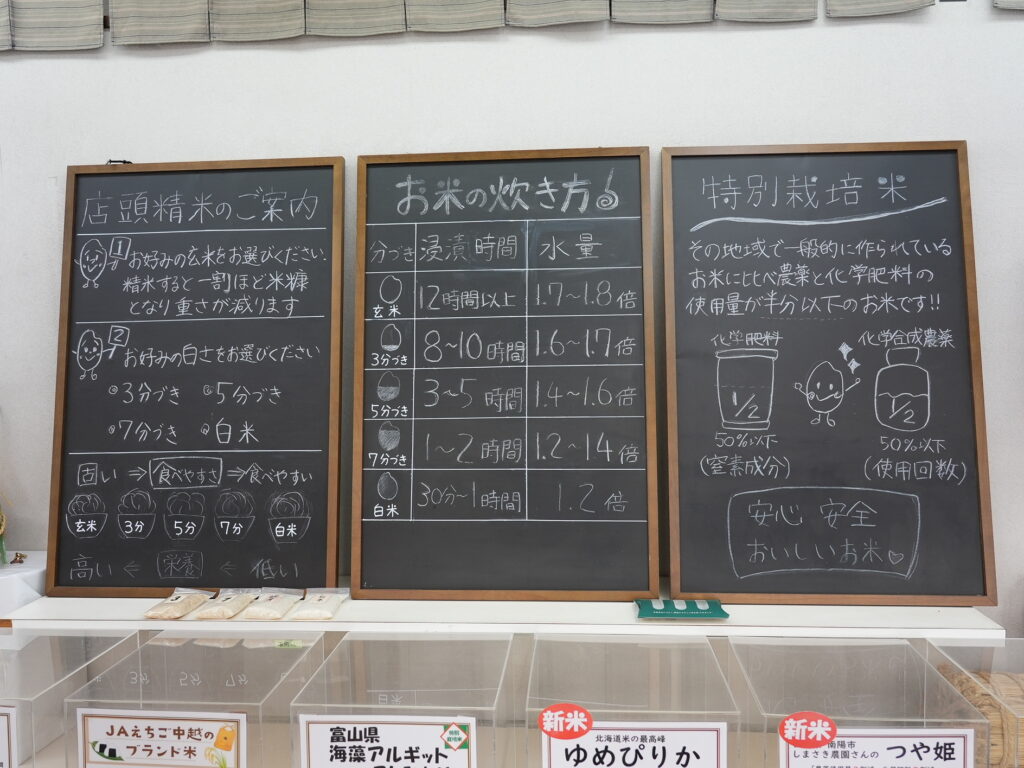 店頭精米のご案内
1
お好みの玄米をお選びください.
精米すると一割ほど米糠
となり重さが減ります
2
お好みの白さをお選びください
3分づき 5分づき
7分づき 白米
固い⇒食べやすさ⇒食べやすい
玄米 3分 5分 7分 白米
高い ⇐ 栄養 ⇐ 低い
お米の炊き方
分づき 浸漬時間 水量
玄米 12時間以上 1.7~1.8倍
3分づき 8~10時間 1.6~1.7倍
5分づき 3~5時間 1.4~1.6倍
7分づき 1~2時間 1.2~1.4倍
白米 30分~1時間 1.2倍
特別栽培米
その地域で一般的に作られている
お米にくらべ農薬と化学肥料の
使用量が半分以下のお米です!!
化学肥料 化学合成農薬
1/2 1/2
50%以下 50%以下
(窒素成分) (使用回数)
安心 安全
おいしいお米♡
JAえちご中越の
ブランド米
富山県
海藻アルギット
特別栽培米
新米
北海道米の最高峰
ゆめぴりか
新米
南陽市
しまさき農園さんの つや姫